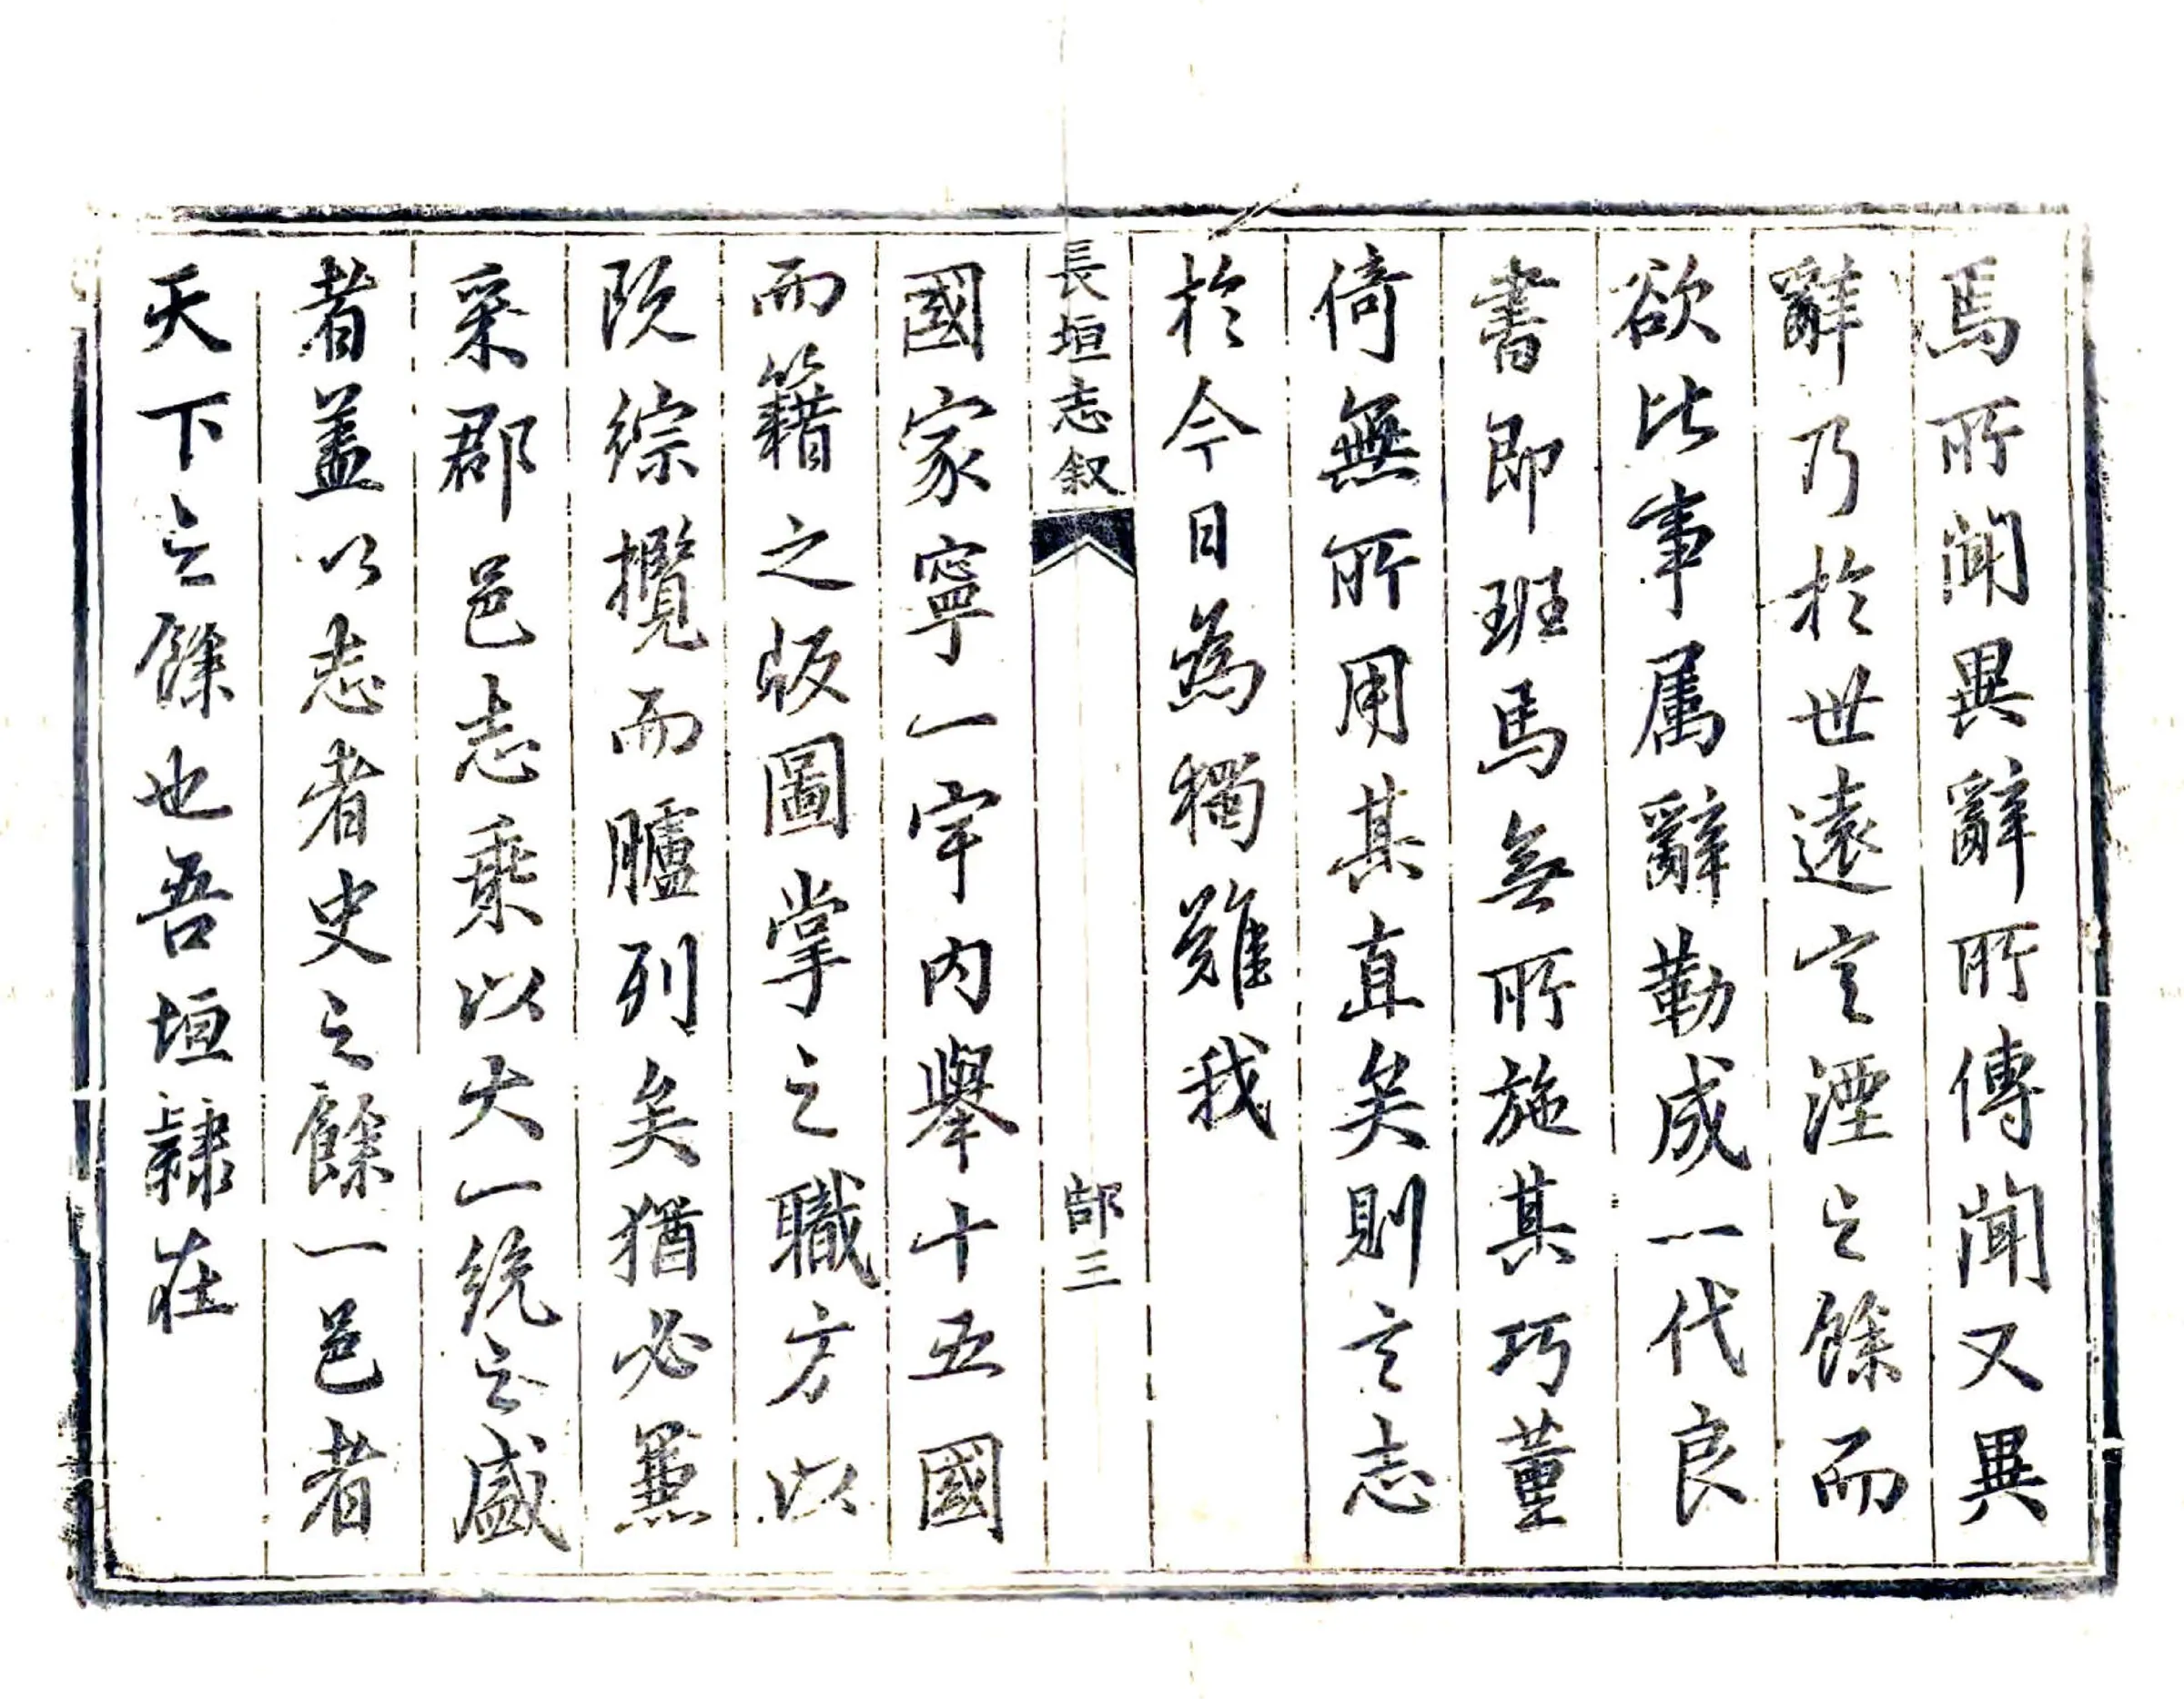 焉所聞異辭所傳聞又異
辭乃於世遠言湮之餘而
欲比事属辭勒成一代良
書即班馬無所施其巧董
倚無所用其直矣則言志
於今日為獨難我
長垣志叙 郜三
國家寧一宇内舉十五國
而籍之版圖掌之職方以
既綜攬而臚列矣猶必羅
采郡邑志乘以大一统之盛
者盖以志者史之餘一邑者
天下之餘也吾垣隷在